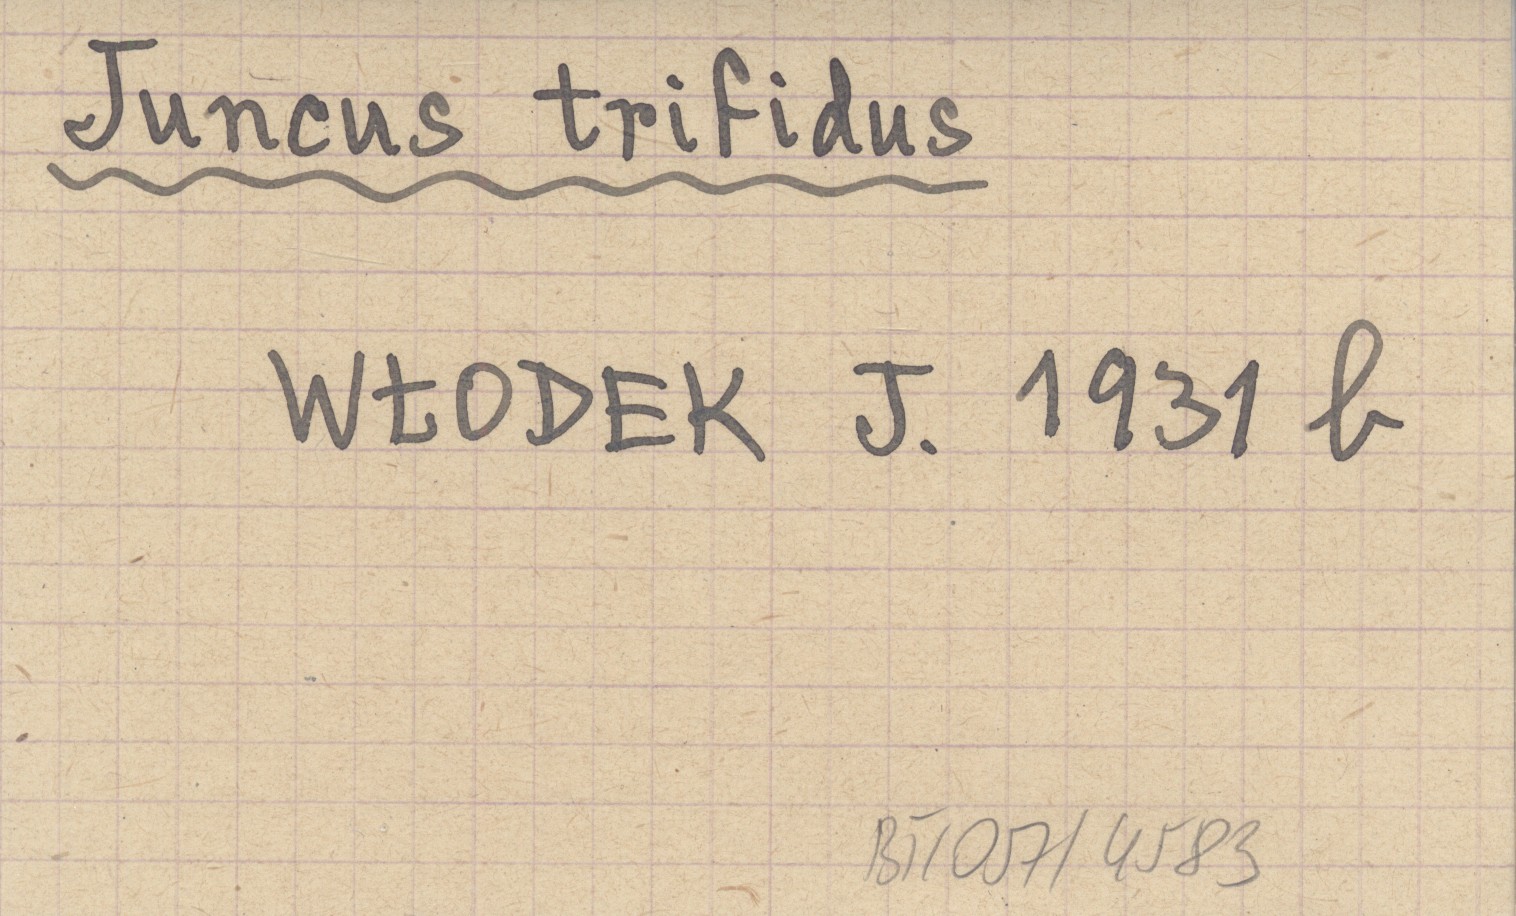 Juncus trifidus
WŁODEK J. 1931 b
BT/057/4583